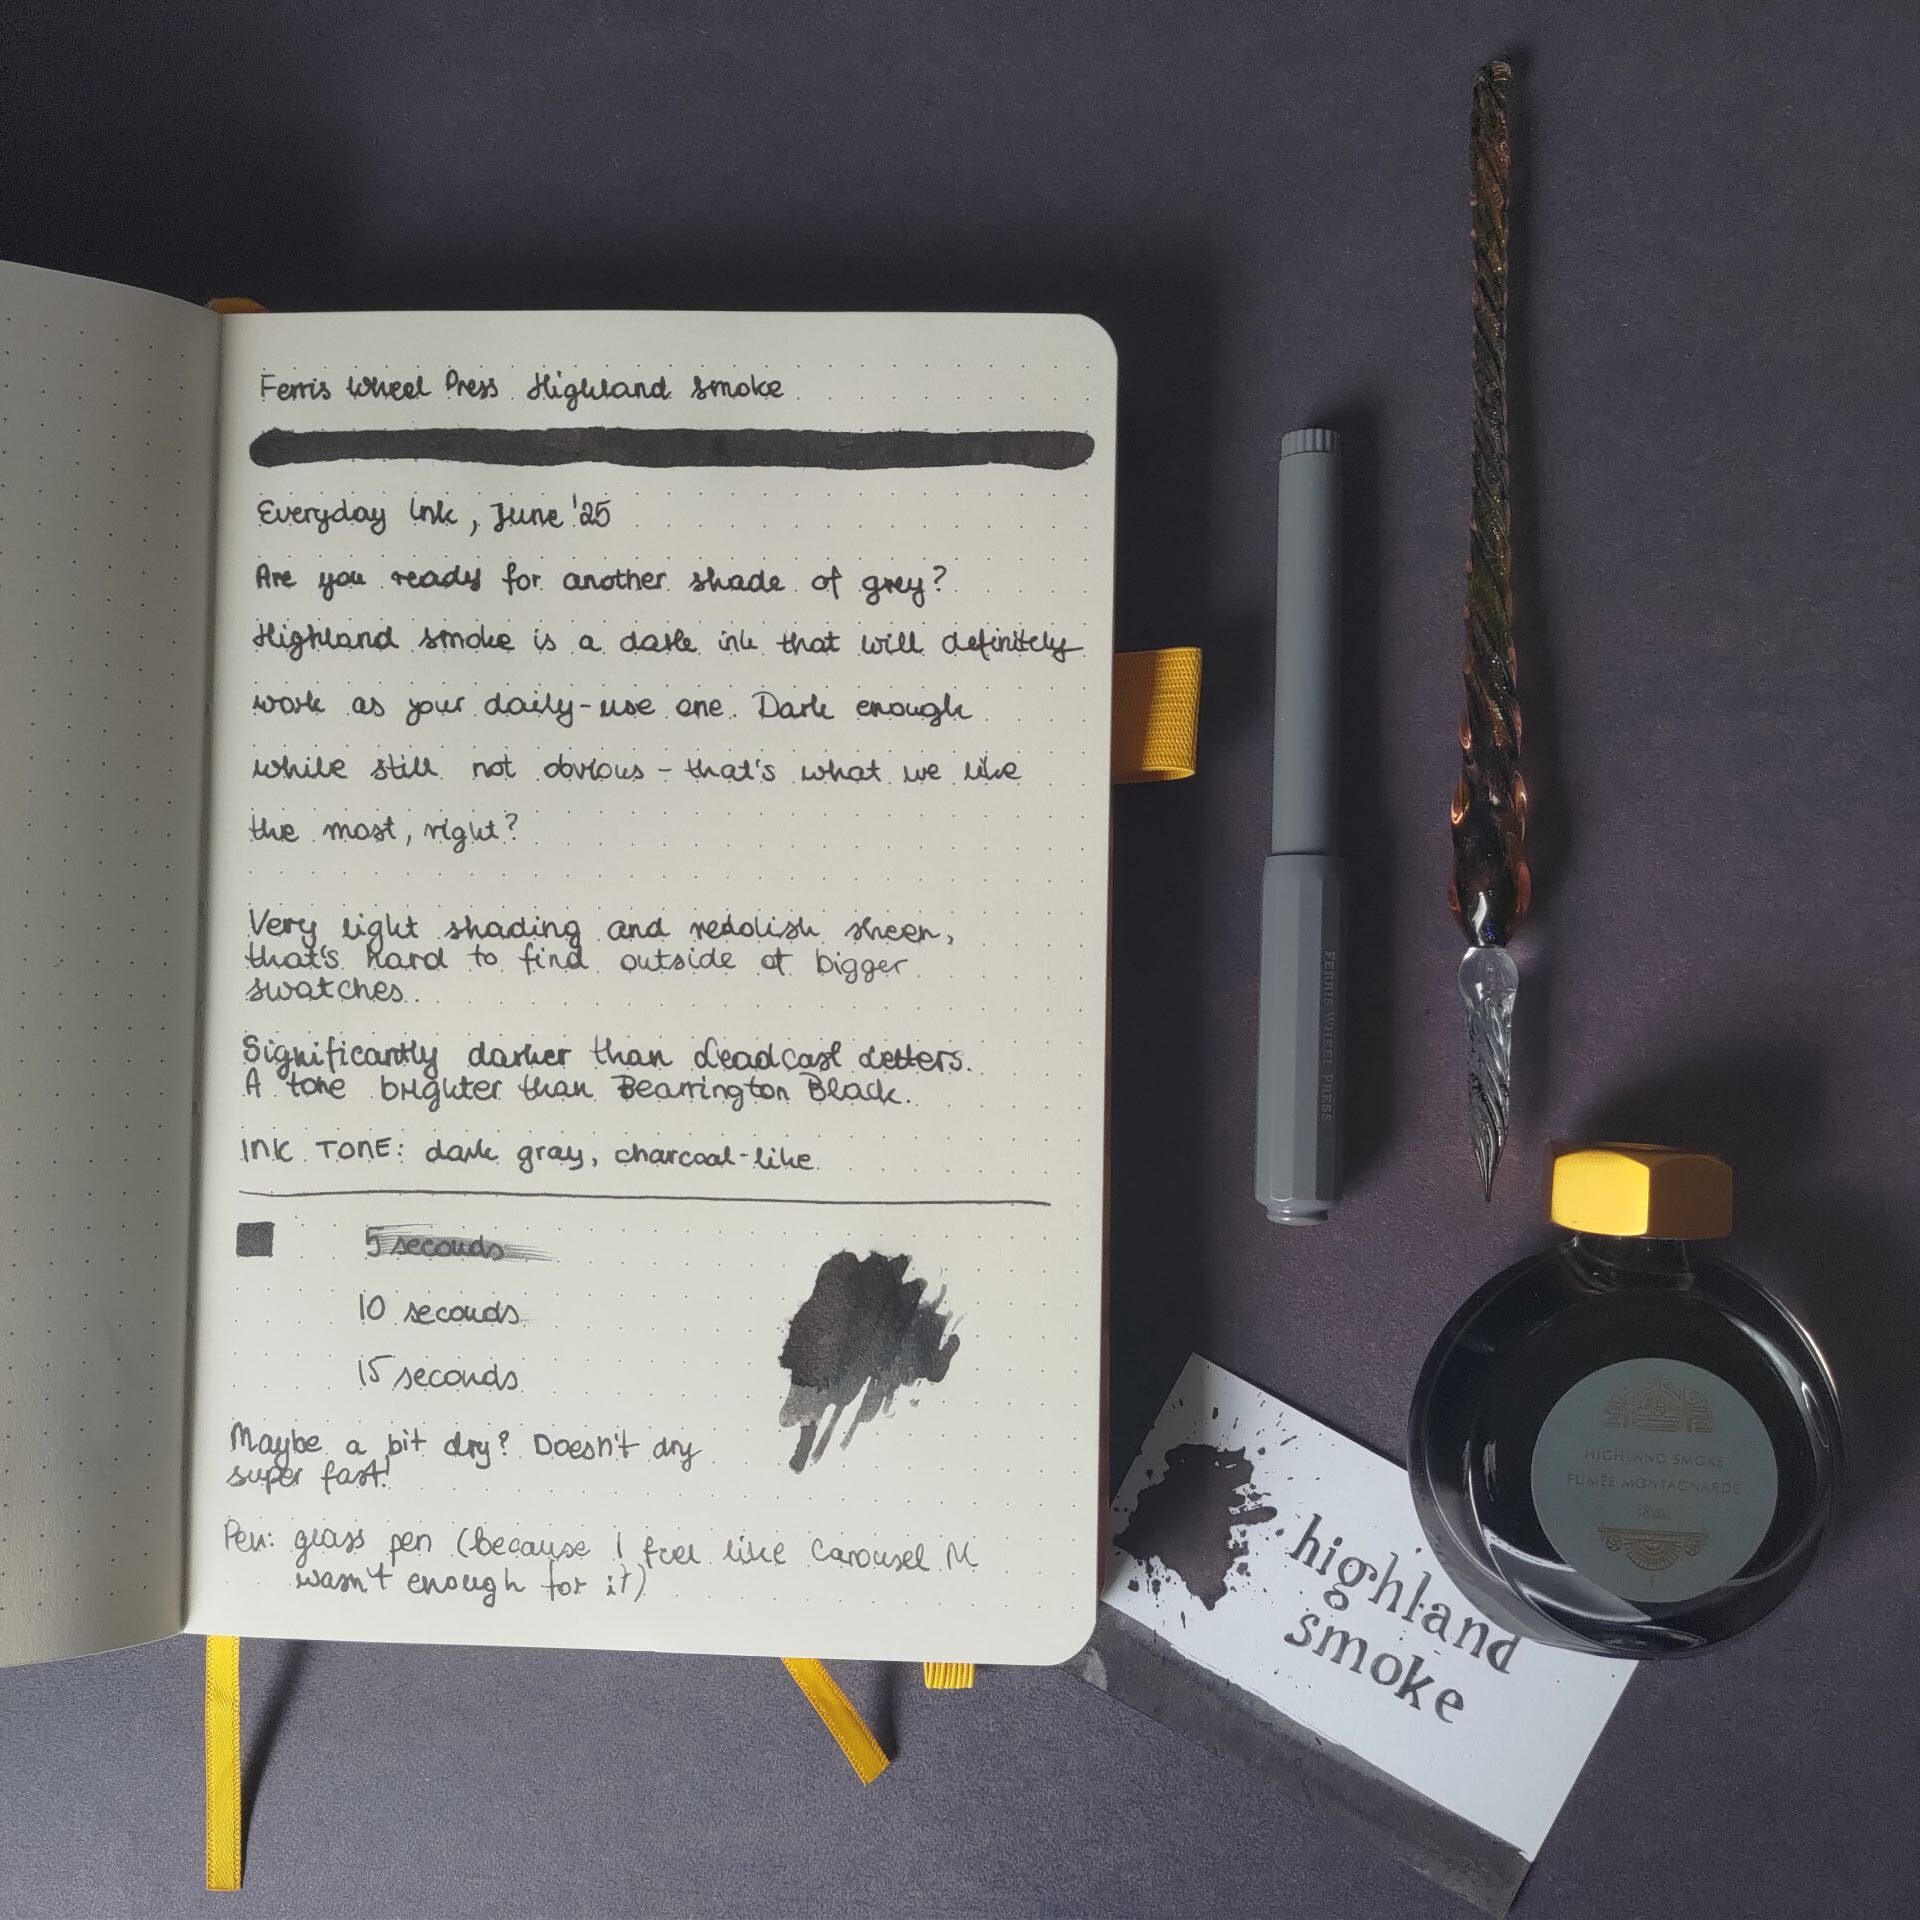 Ferris Wheel Press Highland Smoke
Everyday Ink, June '25
Are you ready for another shade of grey?
Highland Smoke is a dark ink that will definitely
work as your daily-use one. Dark enough
while still not obvious - that's what we like
the most, right?
Very light shading and reddish sheen,
that's hard to find outside of bigger
swatches.
Significantly darker than Leadcast Letters.
A tone brighter than Bearrington Black.
INK TONE: dark gray, charcoal-like
5 seconds
10 seconds
15 seconds
Maybe a bit dry? Doesn't dry
super fast!
Pen: glass pen (because I feel like Carousel M
wasn't enough for it)
FERRIS WHEEL PRESS
HIGHLAND SMOKE
FUMÉE MONTAGNARDE
highland
smoke